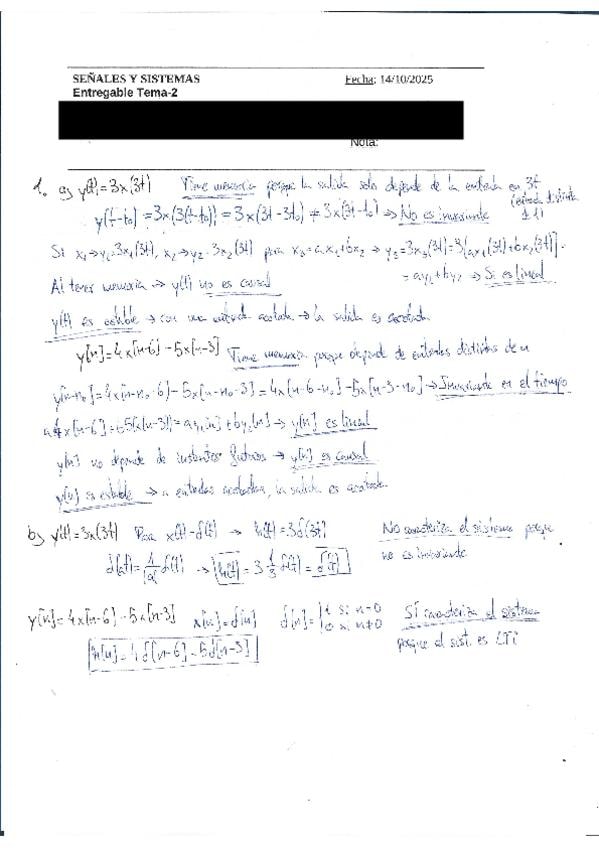 SEÑALES Y SISTEMAS Fecha: 14/10/2025
Entregable Tema-2
Nota:
1. a) y(t)=3x(3t) Tiene memoria porque la salida solo depende de la entrada en 3t
(entrada distinta a t)
y(t-t₀)=3x(3(t-t₀))=3x(3t-3t₀)≠3x(3t-t₀)→No es invariante
Si x₁→y₁=3x₁(3t), x₂→y₂=3x₂(3t) para x₃=ax₁+bx₂→y₃=3x₃(3t)=3[ax₁(3t)+bx₂(3t)]=
=ay₁+by₂→Si es lineal
Al tener memoria→y(t) no es causal
y(t) es estable→con una entrada acotada→la salida es acotada.
y[n]=4x[n-6]-5x[n-3] Tiene memoria porque depende de entradas distintas de n
y[n-n₀]=4x[n-n₀-6]-5x[n-n₀-3]=4x[n-6-n₀]-5x[n-3-n₀]→Invariante en el tiempo
=ay₁[n]+by₂[n]→y[n] es lineal
y[n] no depende de instantes futuros→y[n] es causal
y[n] es estable→a entradas acotadas, la salida es acotada.
b) y(t)=3x(3t) Para x(t)=δ(t)→h(t)=3δ(3t) No caracteriza el sistema porque
no es invariante
δ(at)=1/|a| δ(t)→h(t)=3·1/3 δ(t)=δ(t)
y[n]=4x[n-6]-5x[n-3] x[n]=δ[n] δ[n]={1 si n=0 Sí caracteriza el sistema
0 si n≠0 porque el sist. es LTI
h[n]=4δ[n-6]-5δ[n-3]